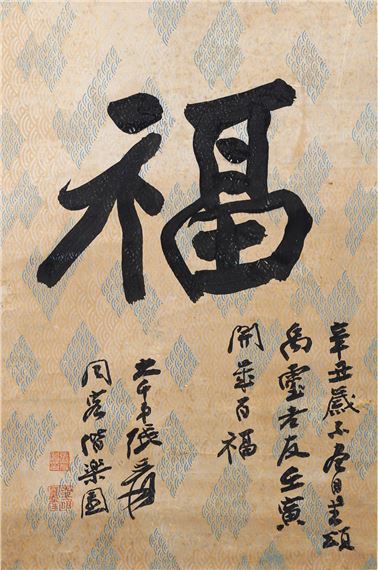 福
辛丑歲不盡日書頌
禹靈老友壬寅
開歲百福
大千弟張爰
同客偕樂園